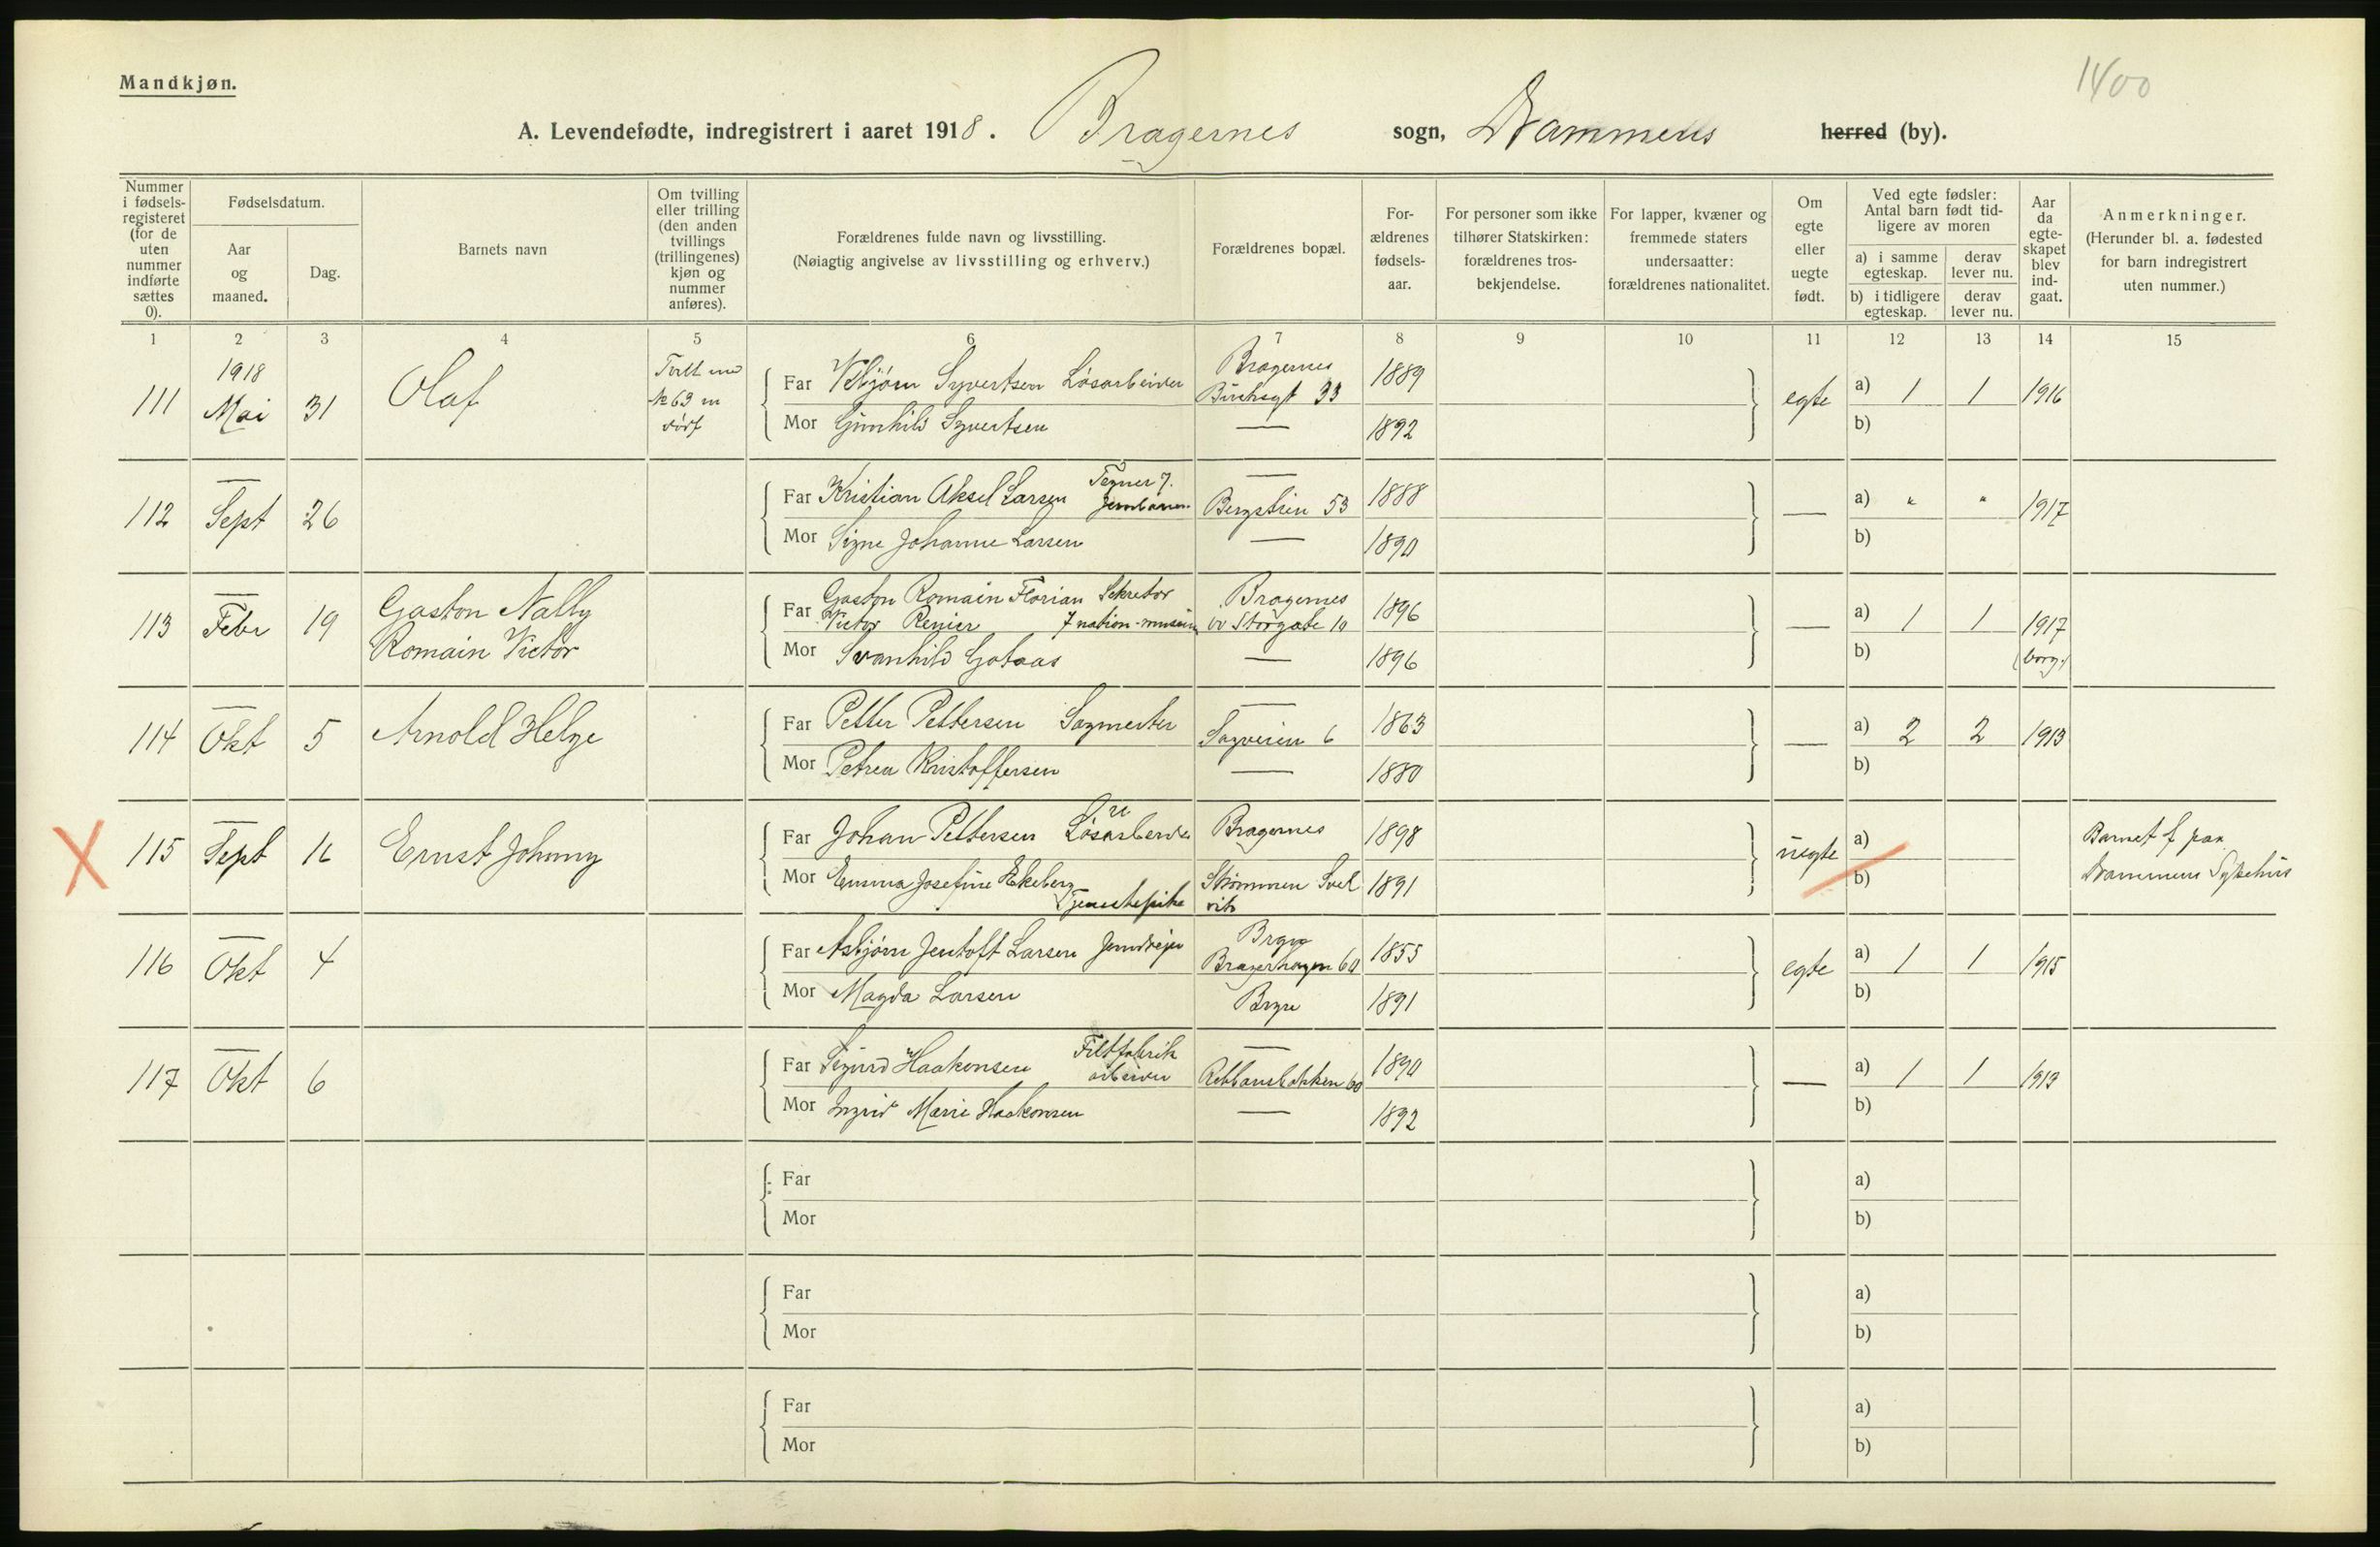 Mandkjøn.
1400
A. Levendefødte, indregistrert i aaret 1918. Bragernes sogn, Drammens herred (by).
Nummer i fødsels-registeret (for de uten nummer indførte sættes 0).
Fødselsdatum.
Aar og maaned.
Dag.
Barnets navn
Om tvilling eller trilling (den anden tvillings (trillingenes) kjøn og nummer anføres).
Forældrenes fulde navn og livsstilling.
(Nøiagtig angivelse av livsstilling og erhverv.)
Forældrenes bopæl.
For-ældrenes fødsels-aar.
For personer som ikke tilhører Statskirken: forældrenes tros-bekjendelse.
For lapper, kvæner og fremmede staters undersaatter: forældrenes nationalitet.
Om egte eller uegte født.
Ved egte fødsler: Antal barn født tid-ligere av moren
a) i samme egteskap.
derav lever nu.
b) i tidligere egteskap.
derav lever nu.
Aar da egte-skapet blev ind-gaat.
Anmerkninger.
(Herunder bl. a. fødested for barn indregistrert uten nummer.)
1 2 3 4 5 6 7 8 9 10 11 12 13 14 15
111 1918 Mai 31 Olaf № 63
Far Syvertsen Løsarbeider Bragernes 33 1889 egte a) 1 1 1916
Mor Gunhild Syvertsen — 1892 b)
112 — Sept 26
Far Kristian Aksel Larsen Tegner J. Jernbanen — Bergstien 53 1888 — a) " " 1917
Mor Signe Johanne Larsen — 1890 b)
113 — Febr 19 Gaston Nally Romain Victor
Far Gaston Romain Florian Victor Renier Sekretær Bragernes Storgate 10 1896 — a) 1 1 1917 (borg.)
Mor Svanhild Gotaas — 1896 b)
114 — Okt 5 Arnold Helge
Far Petter Pettersen Sagmester — Sagveien 6 1863 — a) 2 2 1913
Mor Petrea Kristoffersen — 1880 b)
X 115 — Sept 16 Ernst Johnny
Far Johan Pettersen Løsarbeider Bragernes 1898 uegte a)
Mor Emma Josefine Ekeberg Tjenestepike Strømmen Svelvik 1891 b)
Barnet f paa Drammens Sykehus
116 — Okt 4
Far Asbjørn Jentoft Larsen Brgn 60 1855 egte a) 1 1 1915
Mor Magda Larsen 1891 b)
117 — Okt 6
Far Sigurd Haakonsen Filtfabrik arbeider — 60 1890 — a) 1 1 1913
Mor Ingrid Marie Haakonsen — 1892 b)
Far a)
Mor b)
Far a)
Mor b)
Far a)
Mor b)